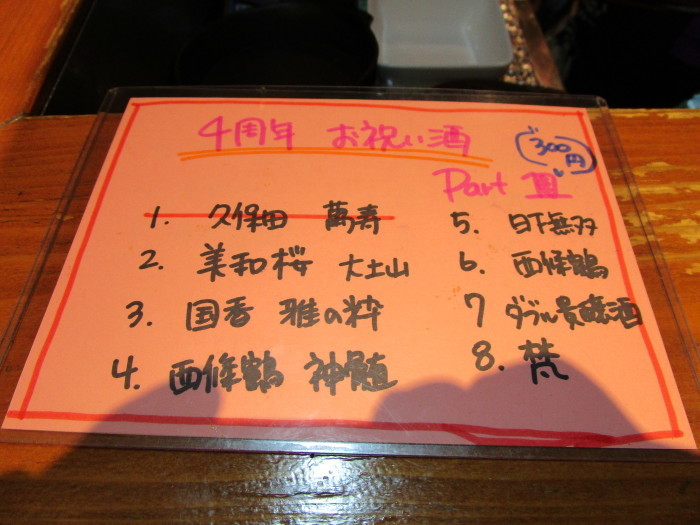 4周年 お祝い酒
300円
Part Ⅲ
1. 久保田 萬寿
2. 美和桜 大土山
3. 国香 雅の粋
4. 西條鶴 神髄
5. 日下無双
6. 西條鶴
7 ダブル貴醸酒
8. 梵